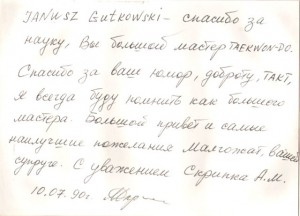 JANUSZ GUTKOWSKI – спасибо за
науку, Вы большой мастер TAEKWON-DO.
Спасибо за ваше юмор, доброту, ТАКТ,
я всегда буду помнить как большого
мастера. Большой привет и самые
наилучшие пожелания Малгожат, вашей
супруге. С уважением Скрипка А.М.
10.07.90г.